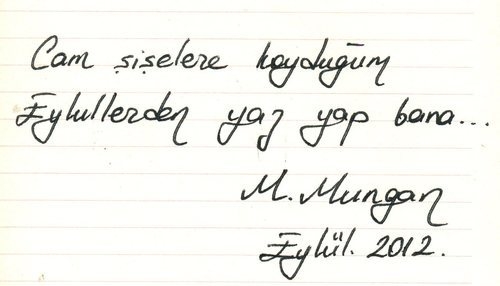 Cam şişelere koyduğum
Eylullerden yaz yap bana...
M. Mungan
Eylül. 2012.